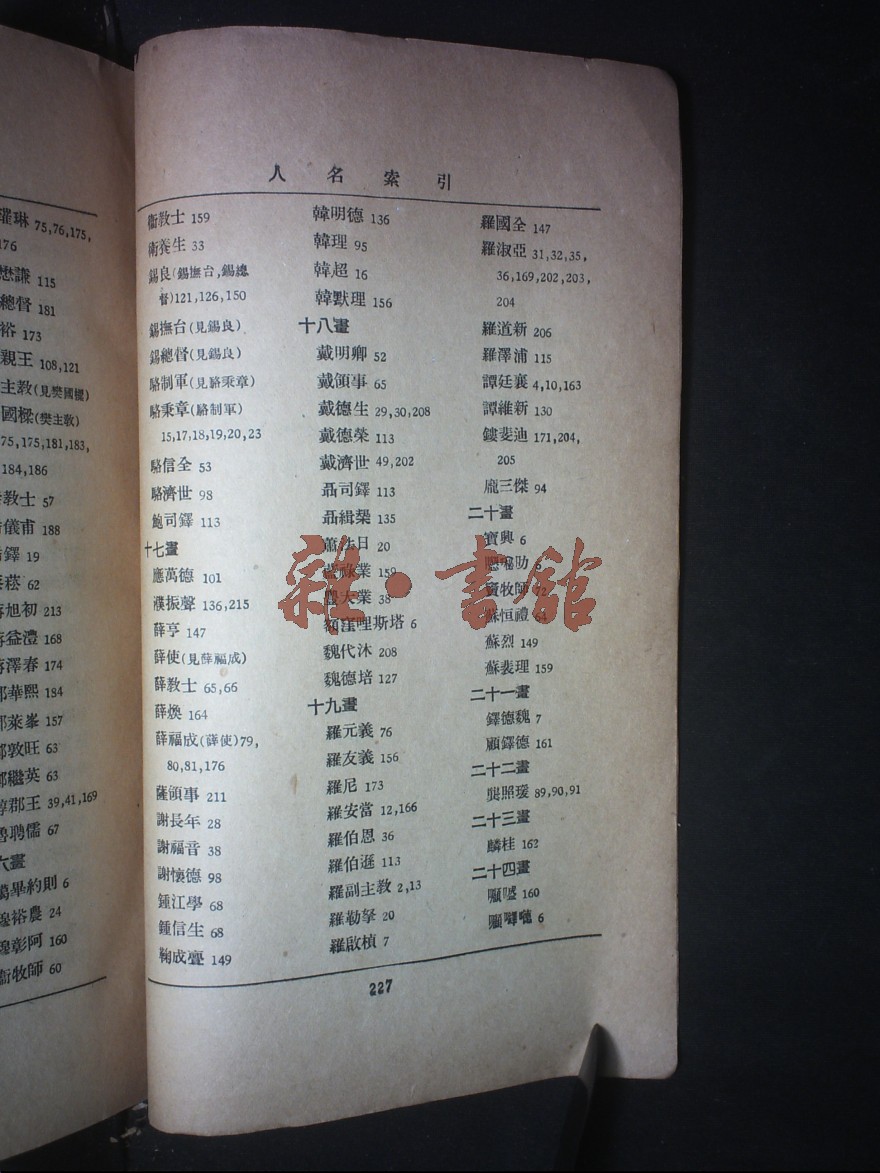 琳 75,76,175,
176
懋謙 115
總督 181
裕 173
親王 108,121
主教(見樊國樑)
國樑(樊主教)
75,175,181,183,
184,186
教士 57
儀甫 188
鐸 19
崧 62
旭初 213
益澧 168
澤春 174
華熙 184
萊峯 157
敦旺 63
繼英 63
醇郡王 39,41,169
魯聘儒 67
六畫
畢約則 6
裕農 24
彰阿 160
衞牧師 60
人名索引
衞教士 159
衛養生 33
錫良(錫撫台,錫總
督)121,126,150
錫撫台(見錫良)
錫總督(見錫良)
駱制軍(見駱秉章)
駱秉章(駱制軍)
15,17,18,19,20,23
駱信全 53
駱濟世 98
鮑司鐸 113
十七畫
應萬德 101
濮振聲 136,215
薛亨 147
薛使(見薛福成)
薛教士 65,66
薛煥 164
薛福成(薛使)79,
80,81,176
薩領事 211
謝長年 28
謝福音 38
謝懷德 98
鍾江學 68
鍾信生 68
鞠成亹 149
韓明德 136
韓理 95
韓超 16
韓默理 156
十八畫
戴明卿 52
戴領事 65
戴德生 29,30,208
戴德榮 113
戴濟世 49,202
聶司鐸 113
聶緝槼 135
蕭法日 20
藍祿業 159
豐大業 38
額窪哩斯塔 6
魏代沐 208
魏德培 127
十九畫
羅元義 76
羅友義 156
羅尼 173
羅安當 12,166
羅伯恩 36
羅伯遜 113
羅副主教 2,13
羅勒拏 20
羅啟楨 7
羅國全 147
羅淑亞 31,32,35,
36,169,202,203,
204
羅道新 206
羅澤浦 115
譚廷襄 4,10,163
譚維新 130
鏤斐迪 171,204,
205
龐三傑 94
二十畫
寶興 6
竇牧師 72
蘇恒禮 64
蘇烈 149
蘇裴理 159
二十一畫
鐸德魏 7
顧鐸德 161
二十二畫
龔照瑗 89,90,91
二十三畫
麟桂 162
二十四畫
227
雜·書館